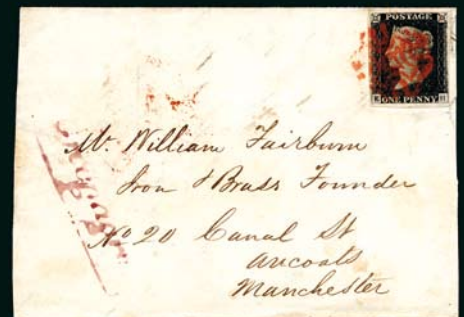 POSTAGE
ONE PENNY
Mr. William Fairburn
Iron & Brass Founder
No 20 Canal St
Ancoats
Manchester